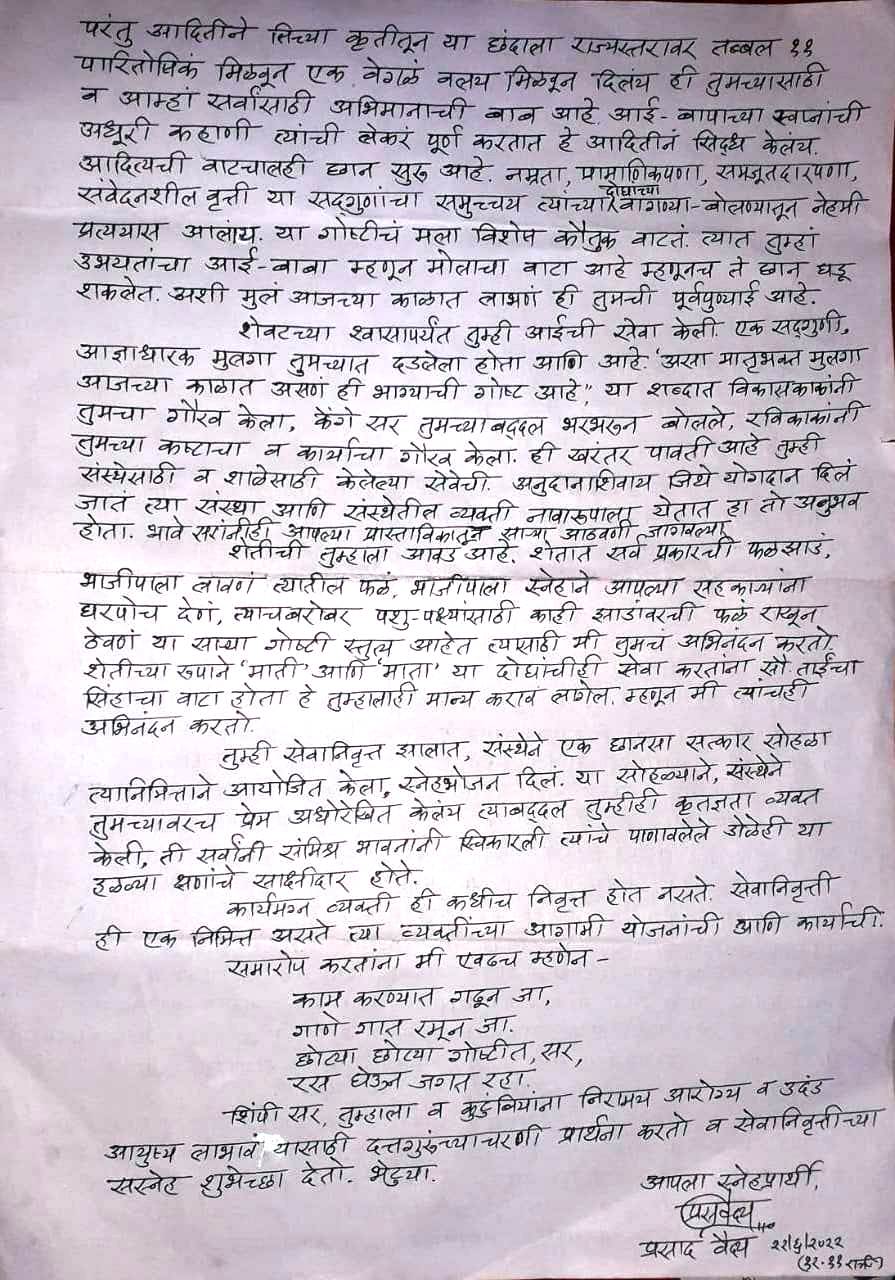 परंतु आदितीने तिच्या कृतीतून या छंदाला राज्यस्तरावर तब्बल ११
पारितोषिकं मिळवून एक वेगळं वलय मिळवून दिलंय ही तुमच्यासाठी
व आम्हां सर्वांसाठी अभिमानाची बाब आहे. आई-बापाच्या स्वप्नांची
अधूरी कहाणी त्यांची लेकरं पूर्ण करतात हे आदितीनं सिद्ध केलंय.
आदित्यची वाटचालही छान सुरु आहे. नम्रता, प्रामाणिकपणा, समजूतदारपणा,
संवेदनशील वृत्ती या सद्‌गुणांचा समुच्चय त्यांच्या दोघांच्या वागण्या-बोलण्यातून नेहमी
प्रत्ययास आलाय. या गोष्टीचं मला विशेष कौतुक वाटतं. त्यात तुम्हां
उभयतांचा आई-बाबा म्हणून मोलाचा वाटा आहे म्हणूनच ते छान घडू
शकलेत. अशी मुलं आजच्या काळात लाभणं ही तुमची पूर्वपुण्याई आहे.
शेवटच्या श्वासापर्यंत तुम्ही आईची सेवा केली. एक सद्‌गुणी,
आज्ञाधारक मुलगा तुमच्यात दडलेला होता आणि आहे. 'असा मातृभक्त मुलगा
आजच्या काळात असणं ही भाग्याची गोष्ट आहे,' या शब्दात विकासकाकांनी
तुमचा गौरव केला, केंगे सर तुमच्याबद्दल भरभरून बोलले, रविकाकांनी
तुमच्या कष्टाचा व कार्याचा गौरव केला. ही खरंतर पावती आहे तुम्ही
संस्थेसाठी व शाळेसाठी केलेल्या सेवेची. अनुदानाशिवाय जिथे योगदान दिलं
जातं त्या संस्था आणि संस्थेतील व्यक्ती नावारूपाला येतात हा तो अनुभव
होता. भावे सरांनीही आपल्या प्रास्ताविकातून साऱ्या आठवणी जागवल्या.
शेतीची तुम्हाला आवड आहे. शेतात सर्व प्रकारची फळझाडं,
भाजीपाला लावणं त्यातील फळं, भाजीपाला स्नेहाने आपल्या सहकाऱ्यांना
घरपोच देणं, त्याचबरोबर पशु-पक्ष्यांसाठी काही झाडांवरची फळं राखून
ठेवणं या साऱ्या गोष्टी स्तुत्य आहेत त्यासाठी मी तुमचं अभिनंदन करतो.
शेतीच्या रुपाने 'माती' आणि 'माता' या दोघांचीही सेवा करतांना सौ ताईंचा
सिंहाचा वाटा होता हे तुम्हालाही मान्य करावं लागेल. म्हणून मी त्यांचंही
अभिनंदन करतो.
तुम्ही सेवानिवृत्त झालात, संस्थेने एक छानसा सत्कार सोहळा
त्यानिमित्ताने आयोजित केला, स्नेहभोजन दिलं. या सोहळ्याने, संस्थेने
तुमच्यावरचं प्रेम अधोरेखित केलंय त्याबद्दल तुम्हीही कृतज्ञता व्यक्त
केली, ती सर्वांनी संमिश्र भावनांनी स्विकारली त्यांचे पाणावलेले डोळेही या
हळव्या क्षणांचे साक्षीदार होते.
कार्यमग्न व्यक्ती ही कधीच निवृत्त होत नसते. सेवानिवृत्ती
ही एक निमित्त असते त्या व्यक्तींच्या आगामी योजनांची आणि कार्याची.
समारोप करतांना मी एवढंच म्हणेन -
काम करण्यात गढून जा,
गाणे गात रमून जा.
छोट्या छोट्या गोष्टीत, सर,
रस घेऊन जगत रहा.
शिंपी सर, तुम्हाला व कुटुंबियांना निरामय आरोग्य व उदंड
आयुष्य लाभावं यासाठी दत्तगुरुंच्याचरणी प्रार्थना करतो व सेवानिवृत्तीच्या
सस्नेह शुभेच्छा देतो. भेटुया.
आपला स्नेहप्रार्थी,
प्रसाद वैद्य २२/६/२०२२
(१२.११ रात्रि)